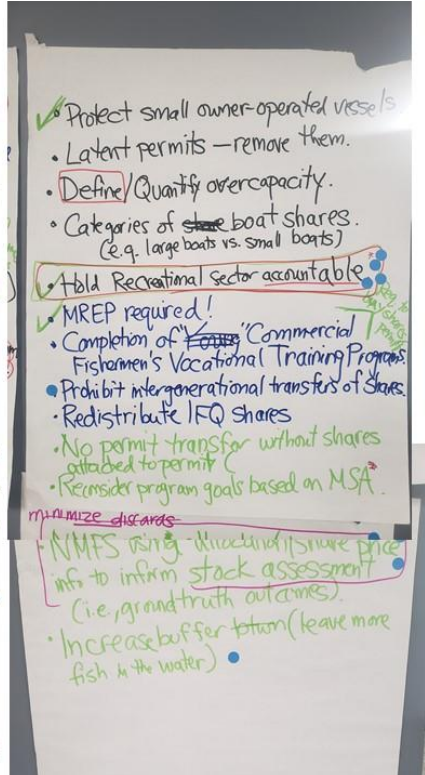 • Protect small owner-operated vessels
• Latent permits – remove them.
• Define/Quantify overcapacity.
• Categories of boat shares.
(e.g. large boats vs. small boats)
• Hold Recreational sector accountable
• MREP required!
• Completion of "Young" Commercial
Fishermen's Vocational Training Program
• Prohibit intergenerational transfers of shares.
• Redistribute IFQ shares
• No permit transfer without shares
attached to permit (
• Reconsider program goals based on MSA*
minimize discards
• NMFS using allocation/share price
info to inform stock assessment
(i.e., ground truth outcomes).
• Increase buffer btwn (leave more
fish in the water)